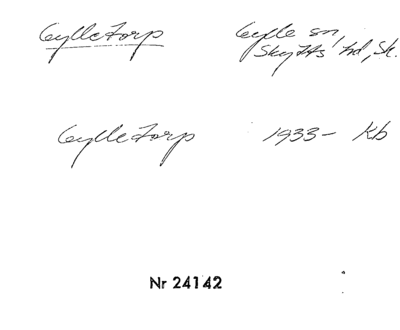 Gylletorp Gylle sn,
Skytts hd, Sk.
Gylletorp 1933- Kb
Nr 24142